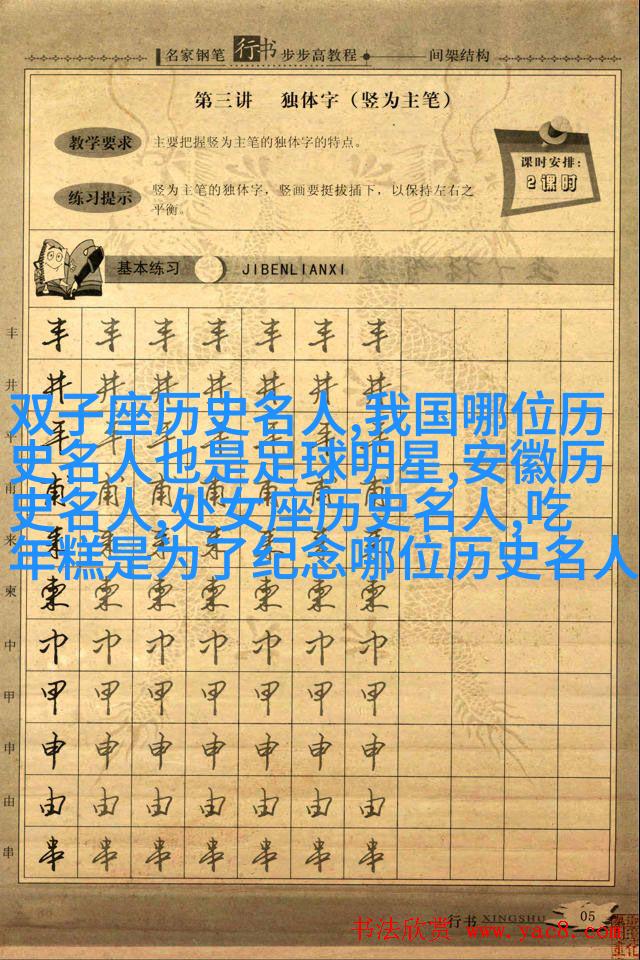 名家钢笔 行书 步步高教程 间架结构
第三讲 独体字（竖为主笔）
教学要求 主要把握竖为主笔的独体字的特点。
课时安排：
2课时
练习提示 竖为主笔的独体字，竖画要挺拔插下，以保持左右之
平衡。
基本练习 JIBENLIANXI
丰 丰 丰 丰 丰 丰 丰 丰
井 井 井 井 井 井 井 井
双子座历史名人,我国哪位历
史名人也是足球明星,安徽历
史名人,处女座历史名人,吃
年糕是为了纪念哪位历史名人
平 平 平 平 平 平 平 平
甫 甫 甫 甫 甫 甫 甫 甫
来 来 来 来 来 来 来 来
柬 柬 柬 柬 柬 柬 柬 柬
中 中 中 中 中 中 中 中
甲 甲 甲 甲 甲 甲 甲 甲
申 申 申 申 申 申 申 申
由 由 由 由 由 由 由 由
串 串 串 串 串 串 串 串
行书 XINGSHU 05
书法欣赏 www.yac8.com